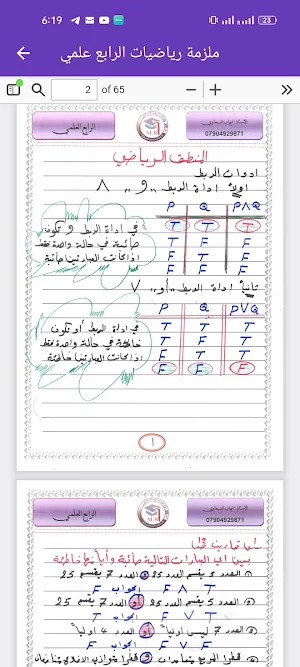 6:19
23
ملزمة رياضيات الرابع علمي
2 of 65
الرابع العلمي
07904929871
المنطق الرياضي
ادوات الربط
اولاً اداة الربط "و" ∧
P Q P∧Q
T T T
T F F
F T F
F F F
في اداة الربط و تكون
صائبة في حالة واحدة فقط
اذا كانت العبارتين صائبة
ثانياً اداة الربط "أو" ∨
P Q P∨Q
T T T
T F T
F T T
F F F
في اداة الربط أو تكون
خاطئة في حالة واحدة فقط
اذا كانت العبارتين خاطئة
١
الرابع العلمي
07904929871
بين اي العبارات التالية صائبة وأيهما خاطئة
① العدد 5 يقسم العدد 25 و العدد 7 يقسم 25
T ∧ F الجواب F
② العدد 5 يقسم العدد 25 أو العدد 7 يقسم 25
T ∨ F الجواب T
③ العدد 7 ليس اولياً أو العدد 4 اولياً
F ∨ F الجواب F